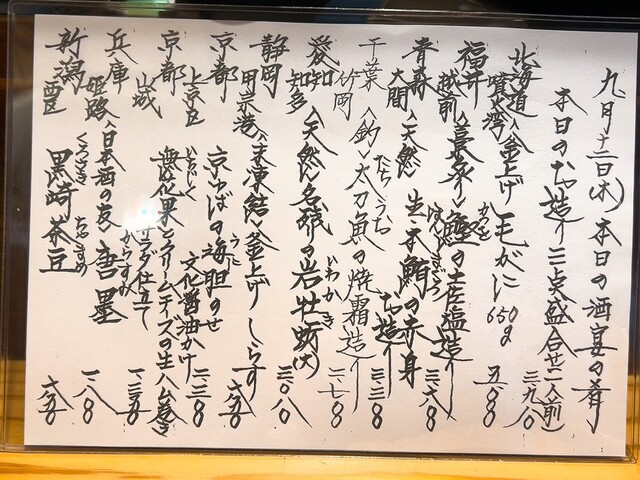 九月十二日(木) 本日の酒宴の肴
本日のお造り三点盛合せ(二人前) 三、九八〇
北海道 噴火湾 〈釜上げ〉毛がに 650g 五、八〇〇
福井 越前 〈藁炙り〉鰹の土佐塩造り 三、二八〇
かつを
青森 大間 〈天然〉生本鮪の赤身お造り
ほんまぐろ
千葉 竹岡 〈釣〉太刀魚の焼霜造り 二、七八〇
たちうお
愛知 知多 〈天然〉名磯の岩牡蛎(大) 三、〇八〇
いわかき
静岡 用宗港 〈未凍結〉釜上げしらす 六八〇
京都 京ゆばの海胆のせ 文化醤油かけ 二、二八〇
うに
京都 山城 無花果とクリームチーズの生ハム巻き サラダ仕立て 一、二八〇
いちじく
兵庫 姫路 〈日本酒の友〉唐墨 一、一八〇
からすみ
新潟 西区 黒崎茶豆 六八〇
くろさきちゃまめ